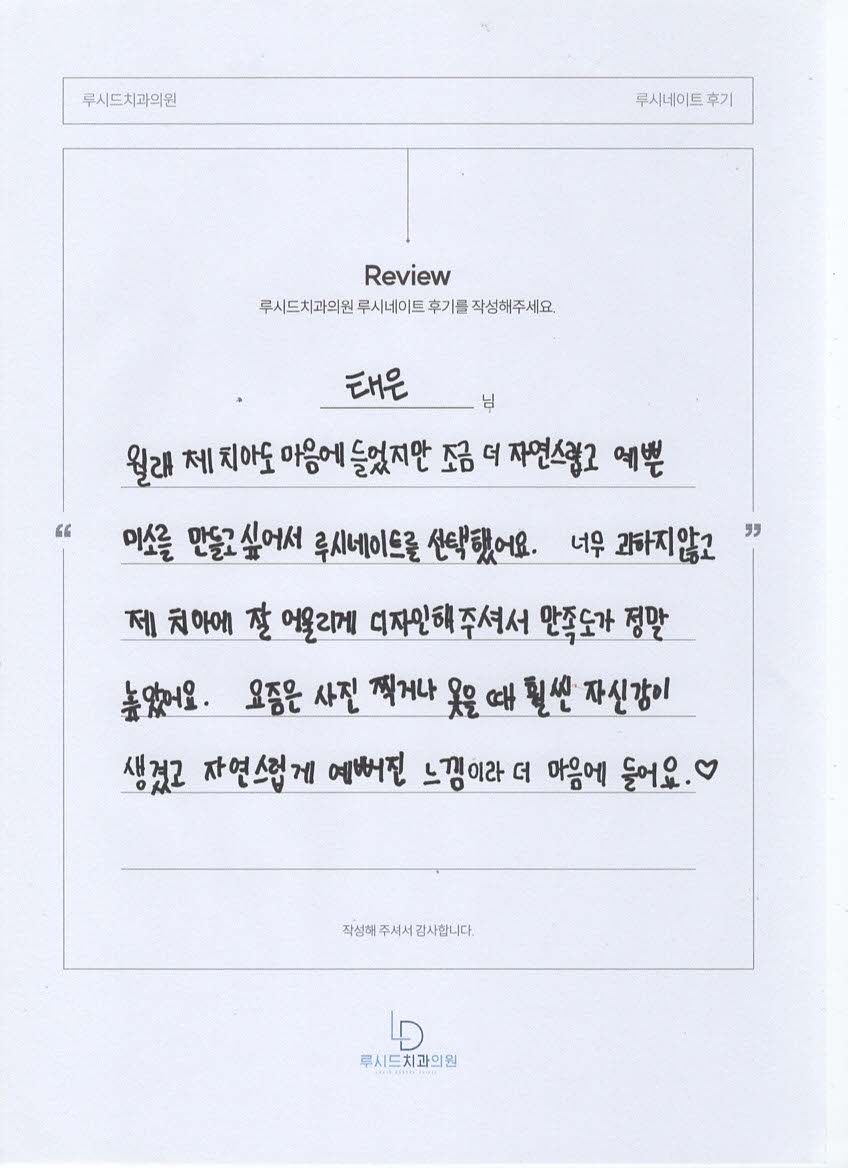 루시드치과의원 루시네이트 후기
Review
루시드치과의원 루시네이트 후기를 작성해주세요.
태은 님
월래 제 치아도 마음에 들었지만 조금 더 자연스럽고 예쁜
“ 미소를 만들고 싶어서 루시네이트를 선택했어요. 너무 과하지 않고 ”
제 치아에 잘 어울리게 디자인해주셔서 만족도가 정말
높았어요. 요즘은 사진 찍거나 웃을 때 훨씬 자신감이
생겼고 자연스럽게 예뻐진 느낌이라 더 마음에 들어요.♡
작성해 주셔서 감사합니다.
LD
루시드치과의원